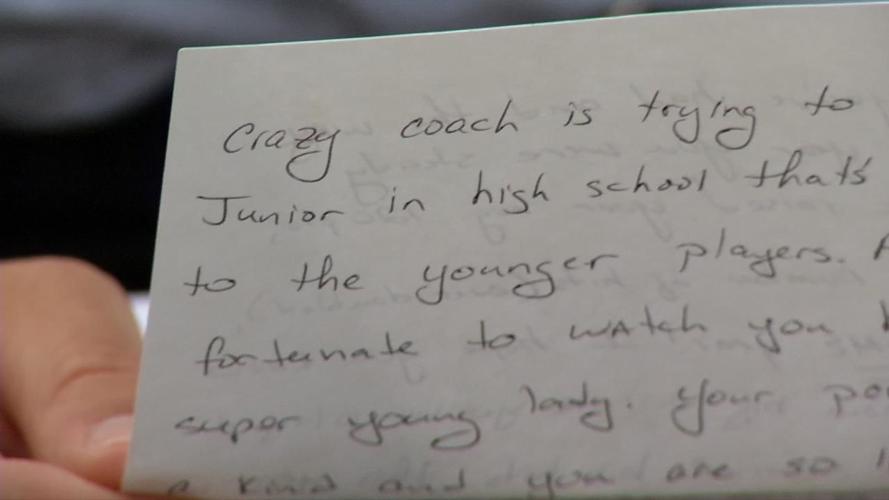 Crazy coach is trying to
Junior in high school that's
to the younger players.
fortunate to watch you
super young lady. Your
a kind and you are so